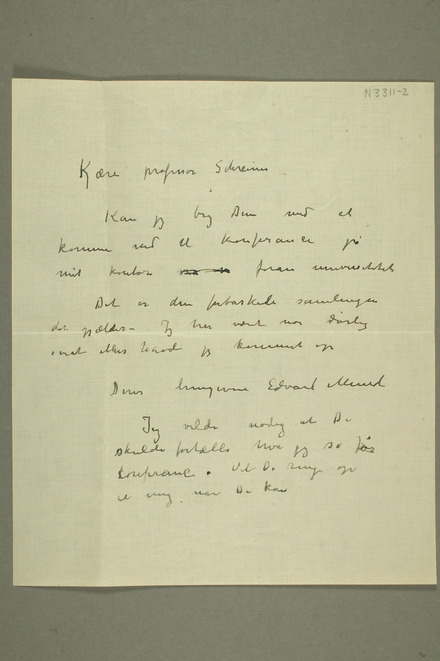 N3311-2
Kære professor Schreiner
Kan jeg bry Dem med at
komme ned til Konferance på
mit kontor foran universitetet
Det er den forbaskede samlingen
det gjælder – Jg har vært noe dårlig
ellers havde jeg kommet op
Deres hengivne Edvard Munch
Jeg vilde nødig at De
skulde fortælle hva jeg sa på
Konferance. Vil De ringe op
til mig når De kan